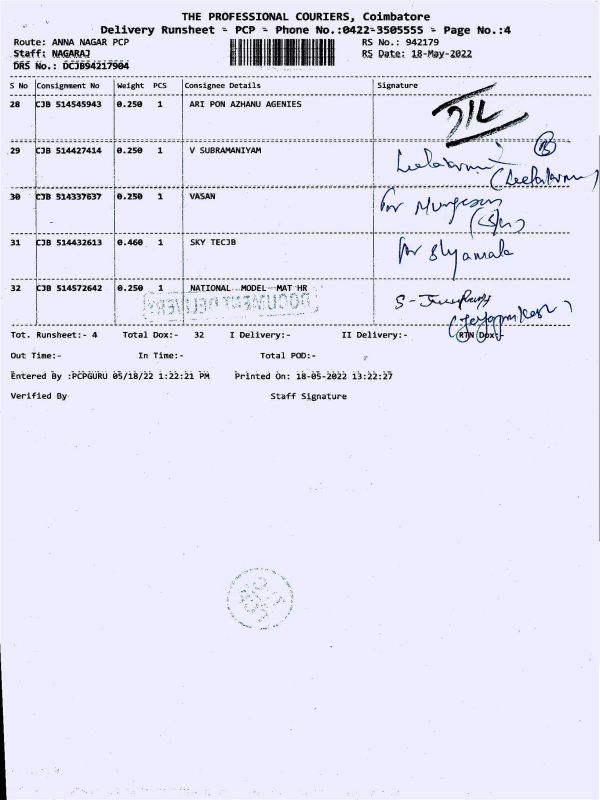 THE PROFESSIONAL COURIERS, Coimbatore
Delivery Runsheet - PCP - Phone No.:0422-3505555 - Page No.:4
Route: ANNA NAGAR PCP RS No.: 942179
Staff: NAGARAJ RS Date: 18-May-2022
DRS No.: DCJB94217904
S No Consignment No Weight PCS Consignee Details Signature
28 CJB 514545943 0.250 1 ARI PON AZHANU AGENIES
29 CJB 514427414 0.250 1 V SUBRAMANIYAM
30 CJB 514337637 0.250 1 VASAN for Murugesan
31 CJB 514432613 0.460 1 SKY TECJB for Shyamala
32 CJB 514572642 0.250 1 NATIONAL MODEL MAT HR
DOCUMENT
Tot. Runsheet:- 4 Total Dox:- 32 I Delivery:- II Delivery:- RTN Dox:-
Out Time:- In Time:- Total POD:-
Entered By :PCPGURU 05/18/22 1:22:21 PM Printed On: 18-05-2022 13:22:27
Verified By Staff Signature